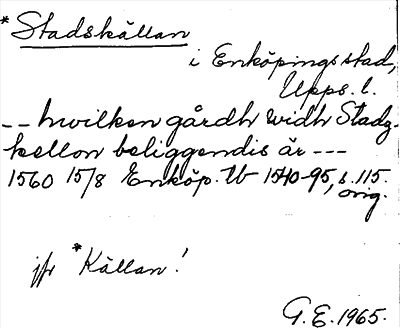 *Stadskällan
i Enköpings stad,
Upps. l.
-- hwilken gårdh widh Stadz-
kellon beliggendis är ---
1560 15/8 Enköp. tb 1540-95, s. 115.
orig.
jfr *Källan!
G.E. 1965.